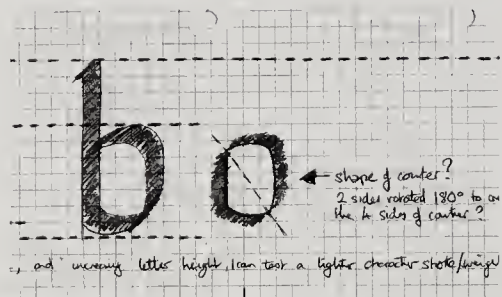 b o
shape of counter?
2 sides rotated 180° to
the 4 sides of counter?
, and increasing letter height, I can test a lighter character stroke/weigh